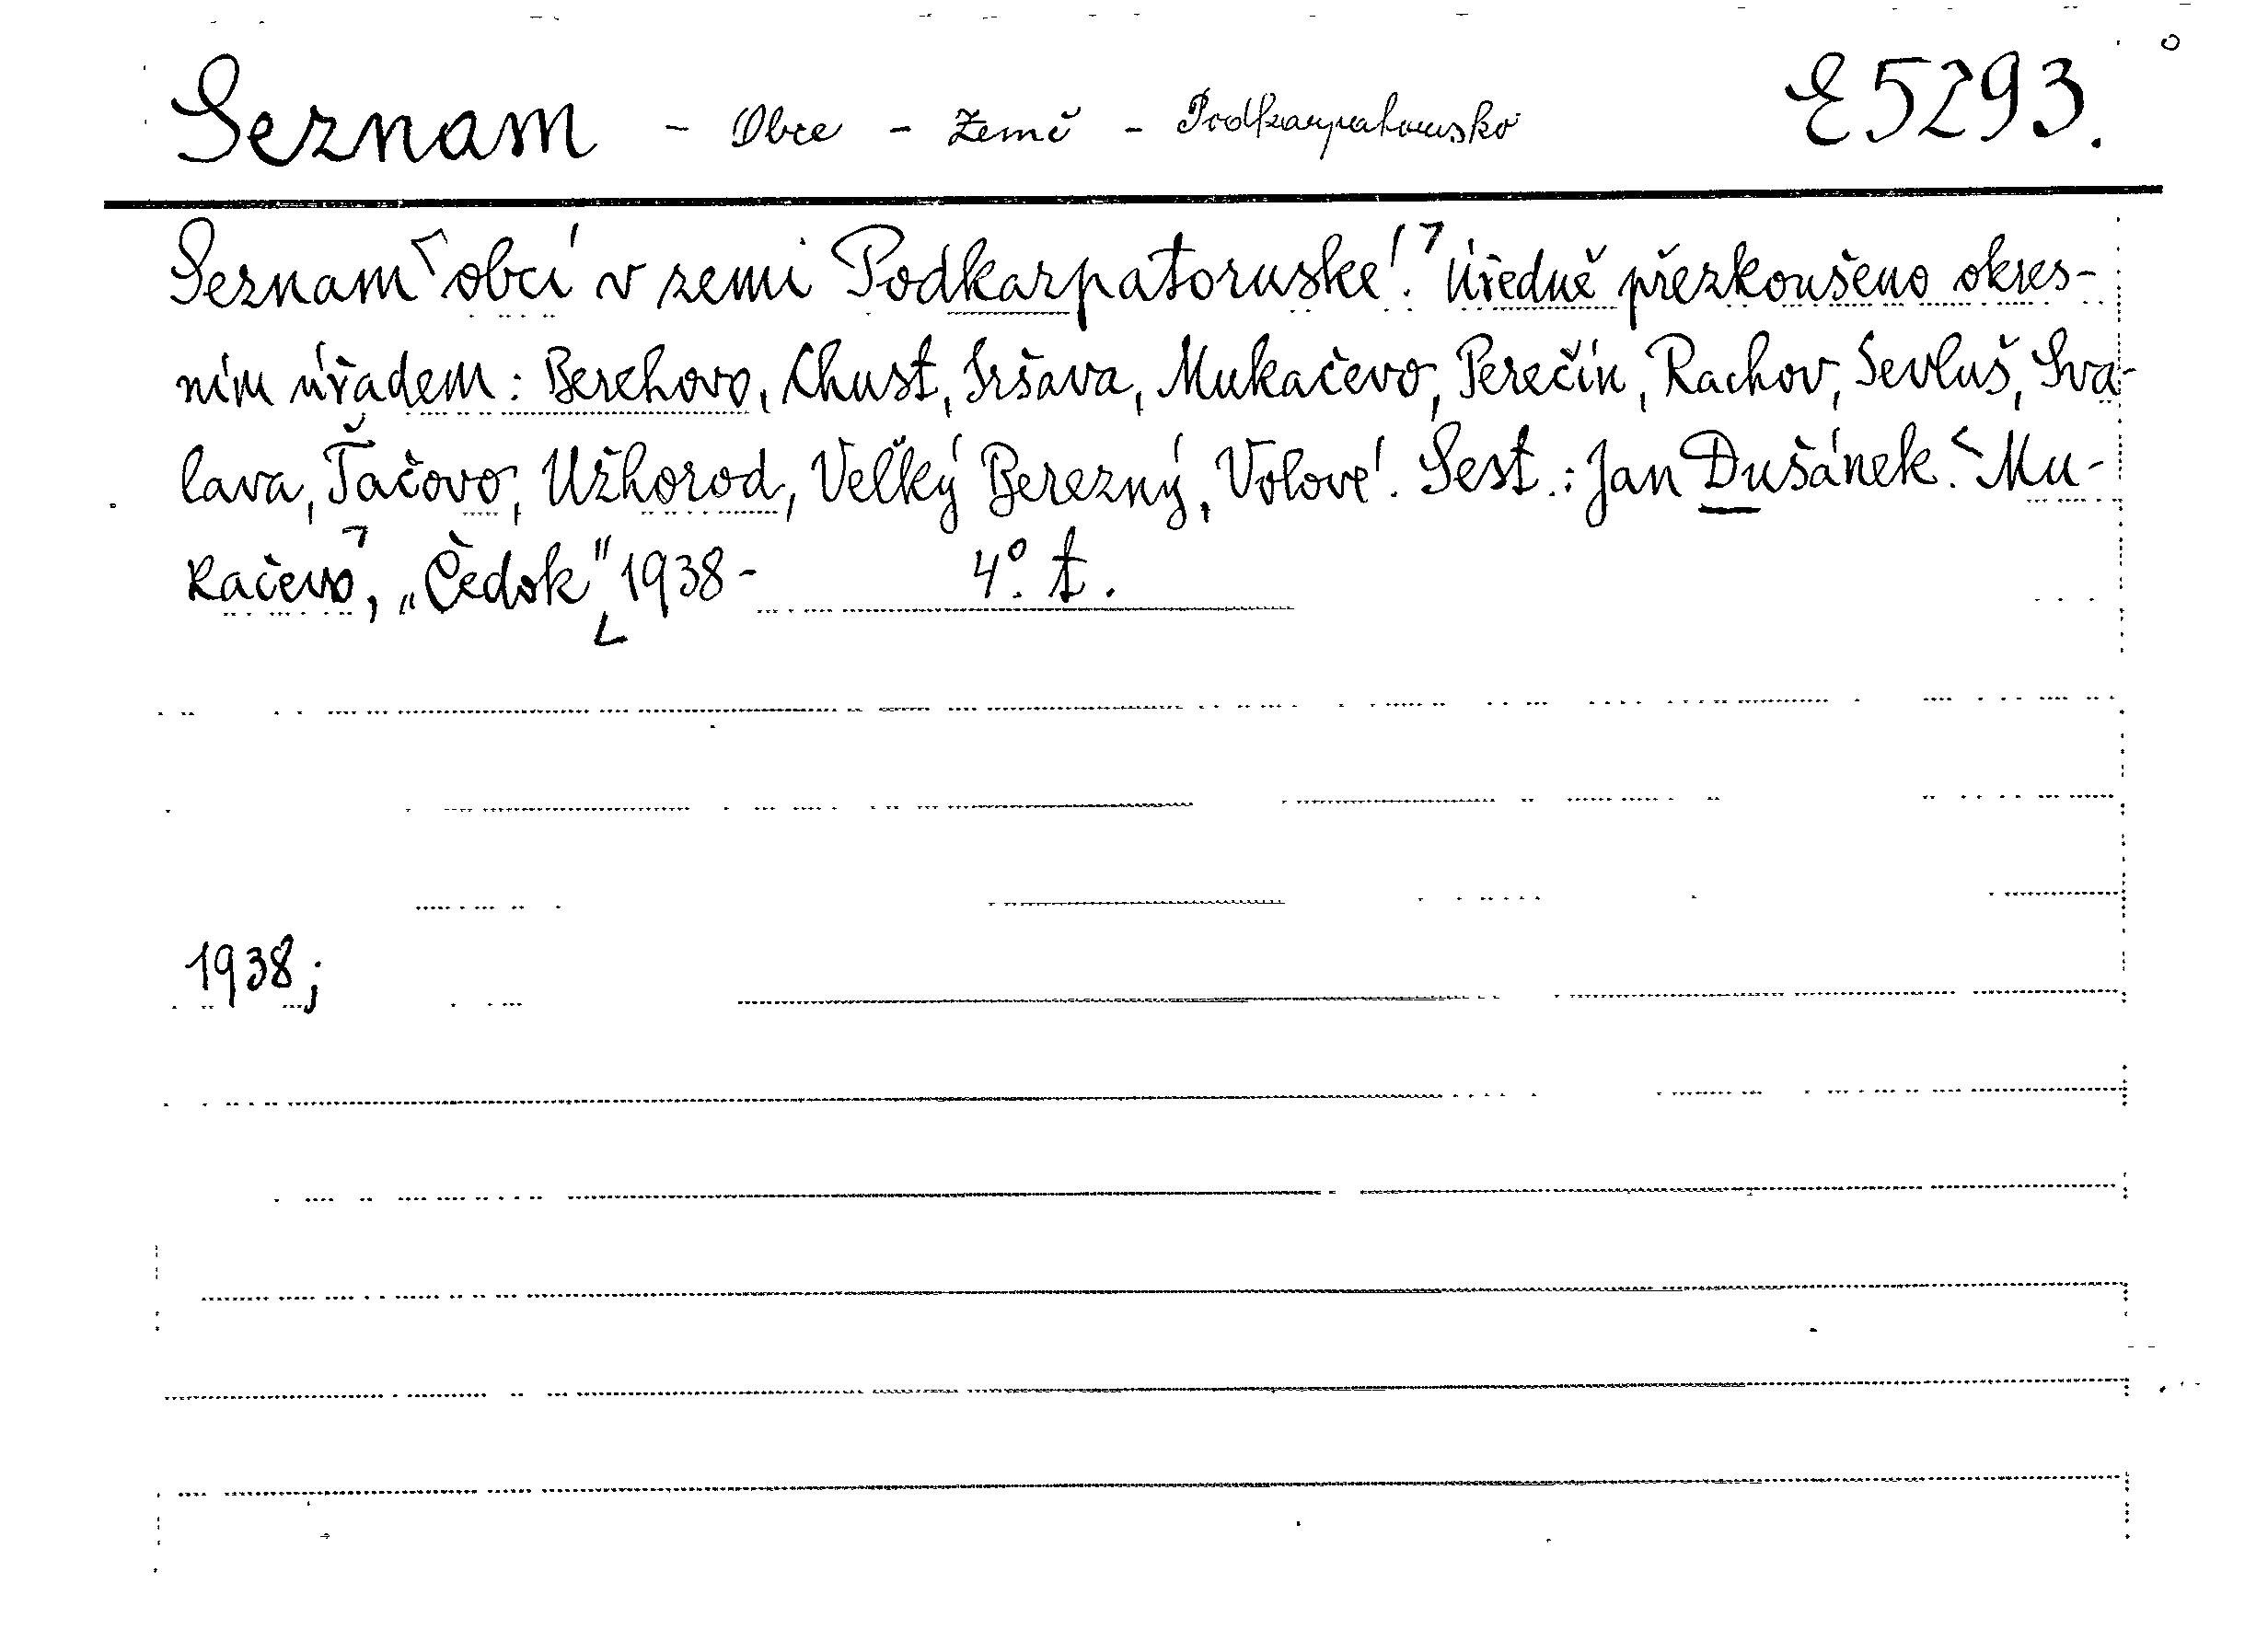 Seznam - Obce - Země - Podkarpatorusko E 5293.
Seznam ⌜obcí v zemi Podkarpatoruské.⌝ Úředně přezkoušeno okres-
ním úřadem: Berehovo, Chust, Iršava, Mukačevo, Perečín, Rachov, Sevluš, Sva-
lava, Ťačovo, Užhorod, Veľký Berezný, Volové. Sest.: Jan Dušánek. ⌜Mu-
kačevo⌝, „Čedok" ⌞1938-   4°. t.
1938;